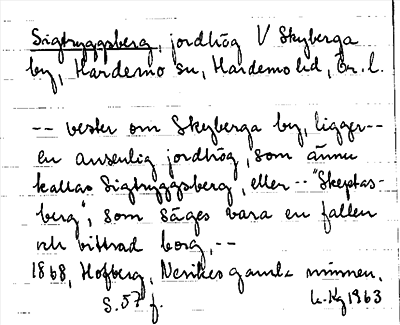 Sigtryggsberg, jordhög V Skyberga
by, Hardemo sn, Hardemo hd, Ör. l.
-- vester om Skyberga by, ligger --
en ansenlig jordhög, som ännu
kallas Sigtryggsberg, eller -- "Skeptas-
berg", som säges vara en fallen
och vittrad borg, --
1868, Hofberg, Nerikes gamla minnen,
S. 57 f.
1963